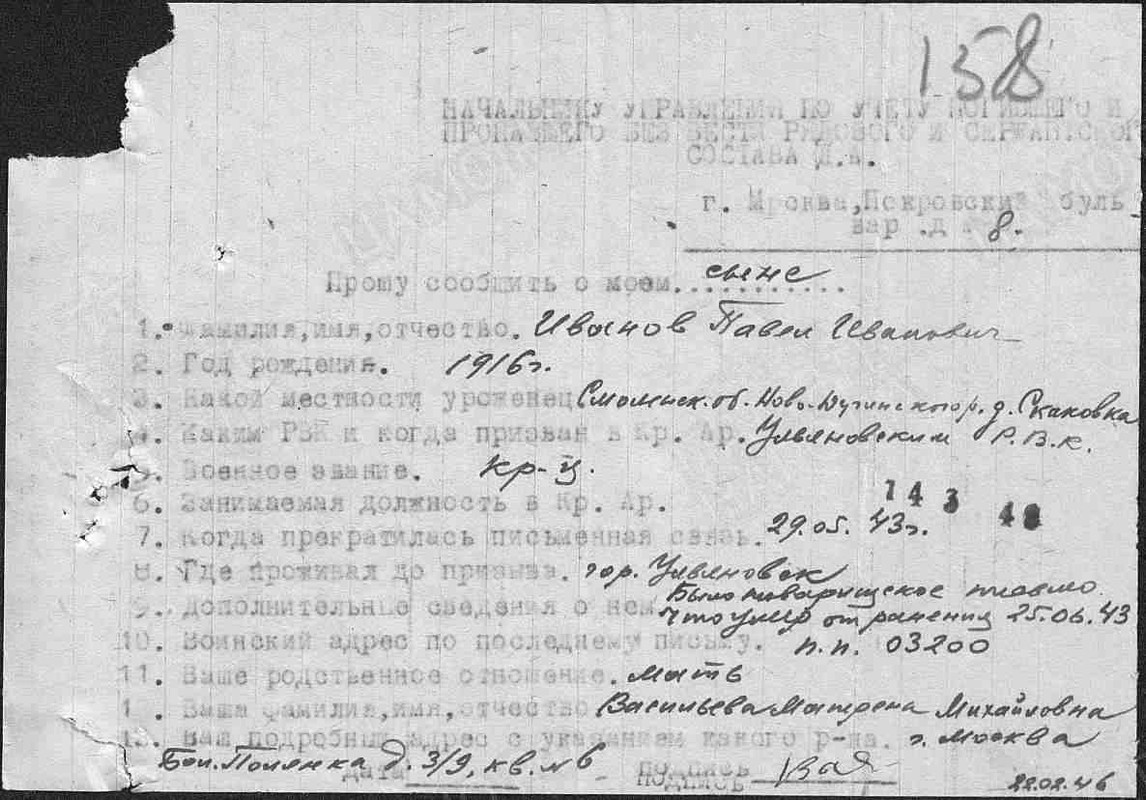 158
НАЧАЛЬНИКУ УПРАВЛЕНИЯ ПО УЧЕТУ ПОГИБШЕГО И
ПРОПАВШЕГО БЕЗ ВЕСТИ РЯДОВОГО И СЕРЖАНТСКОГ
СОСТАВА Д.А.
г. Мроква,Покровский буль
вар .д . 8.
Прошу сообщить о моем. сыне
1. Фамилия,имя,отчество. Иванов Павел Иванович
2. Год рождения. 1916г.
3. Какой местности уроженец Смоленск. об. Ново-Дугинского р. д. Скаковка
4. Каким РВК и когда призван в Кр. Ар. Ульяновским Р.В.К.
5. Военное звание. кр-ц.
6. Занимаемая должность в Кр. Ар.
14 3 4
7. Когда прекратилась письменная связь. 29.05. 43г.
8. Где проживал до призыва. гор. Ульяновск
Было товарищеское письмо
9. Дополнительные сведения о нем что умер от ранения 25.06.43
10. Воинский адрес по последнему письму. п.п. 03200
11. Ваше родственное отношение. мать
1 . Ваша фамилия,имя,отчество Васильева Матрена Михайловна
13. Ваш подробный адрес с указанием какого р-на. г. Москва
Бол. Полянка д. 3/9, кв. №6
Дата подпись
подпись
22.02.46